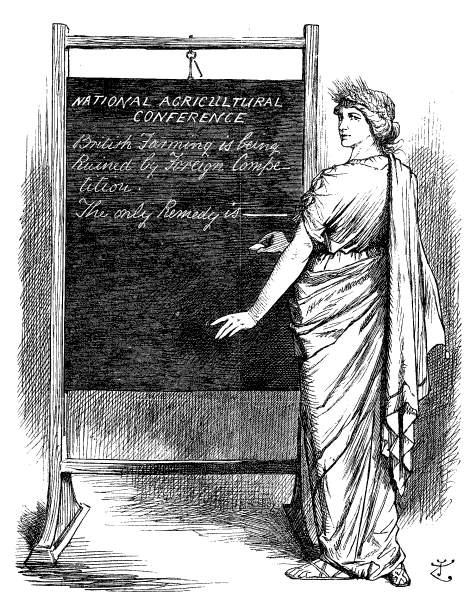 NATIONAL AGRICULTURAL
CONFERENCE
British Farming is being
Ruined by Foreign Compe-
tition!
The only Remedy is ———